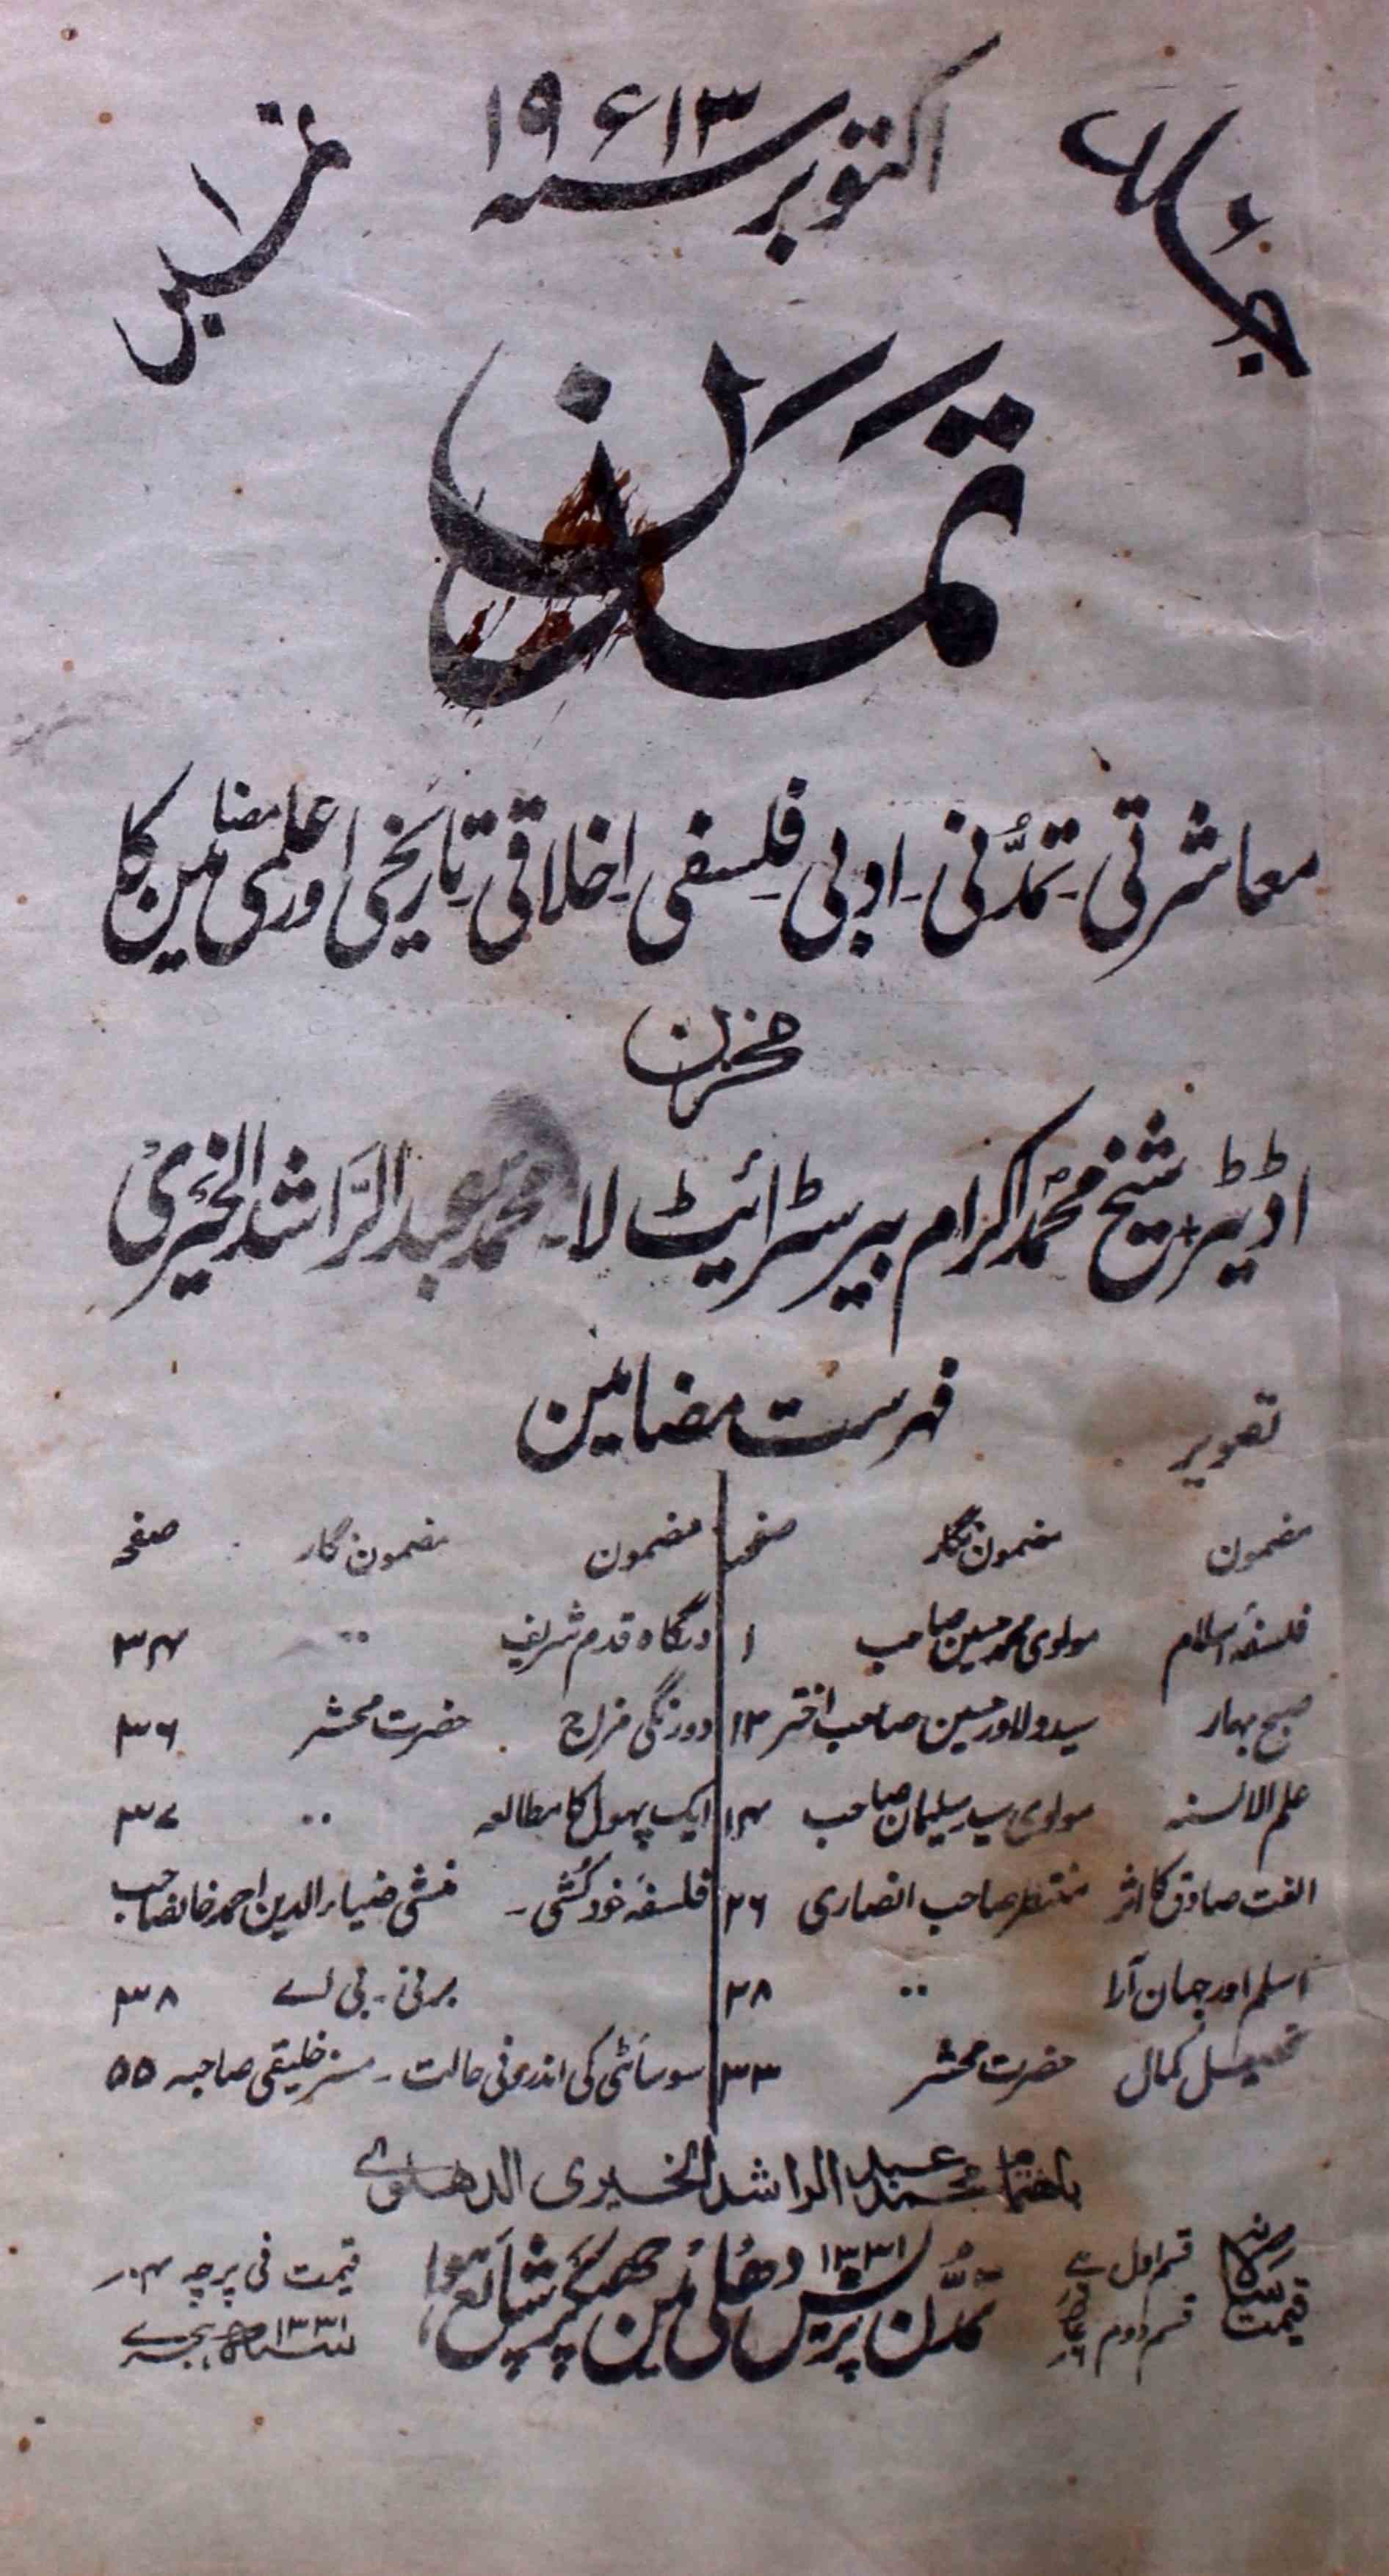 اکتوبر سنہ ۱۹۱۳ء
نمبر ۱
تمدن
معاشرتی ۔ تمدّنی ۔ ادبی فلسفی اخلاقی تاریخی اور علمی مضامین کا
مخزن
اڈیٹر شیخ محمد اکرام بیرسٹرایٹ لا ۔ محمد عبدالراشد الخیری
تصویر
فہرست مضامین
مضمون مضمون نگار صفحہ
فلسفہ اسلام مولوی محمد حسین صاحب ۱
صبح بہار سید ولاور حسین صاحب اختر ۱۳
علم الالسنہ مولوی سید سلیمان صاحب ۱۴
الفت صادق کا اثر منتظر صاحب انصاری ۲۶
اسلم اور جہان آرا ۰۰ ۲۸
تحصیل کمال حضرت محشر ۳۳
مضمون مضمون نگار صفحہ
درگاہ قدم شریف ۰۰ ۳۴
دورنگی مزاج حضرت محشر ۳۶
ایک پھول کا مطالعہ ۰۰ ۳۷
فلسفہ خودکشی ۔ منشی ضیاءالدین احمد خانصاحب
برنی ۔ بی اے ۳۸
سوسائٹی کی اندرونی حالت ۔ مسز خلیقی صاحبہ ۵۵
باہتمام محمد عبدالراشد الخیری الدھلوی
۱۳۳۱
تمدّن پریس دھلی مین چھپکر شایع ہوا
قسم اول
قسم دوم
قیمت فی پرچہ ۴ ؍
سنہ ۱۳۳۱ ہجری